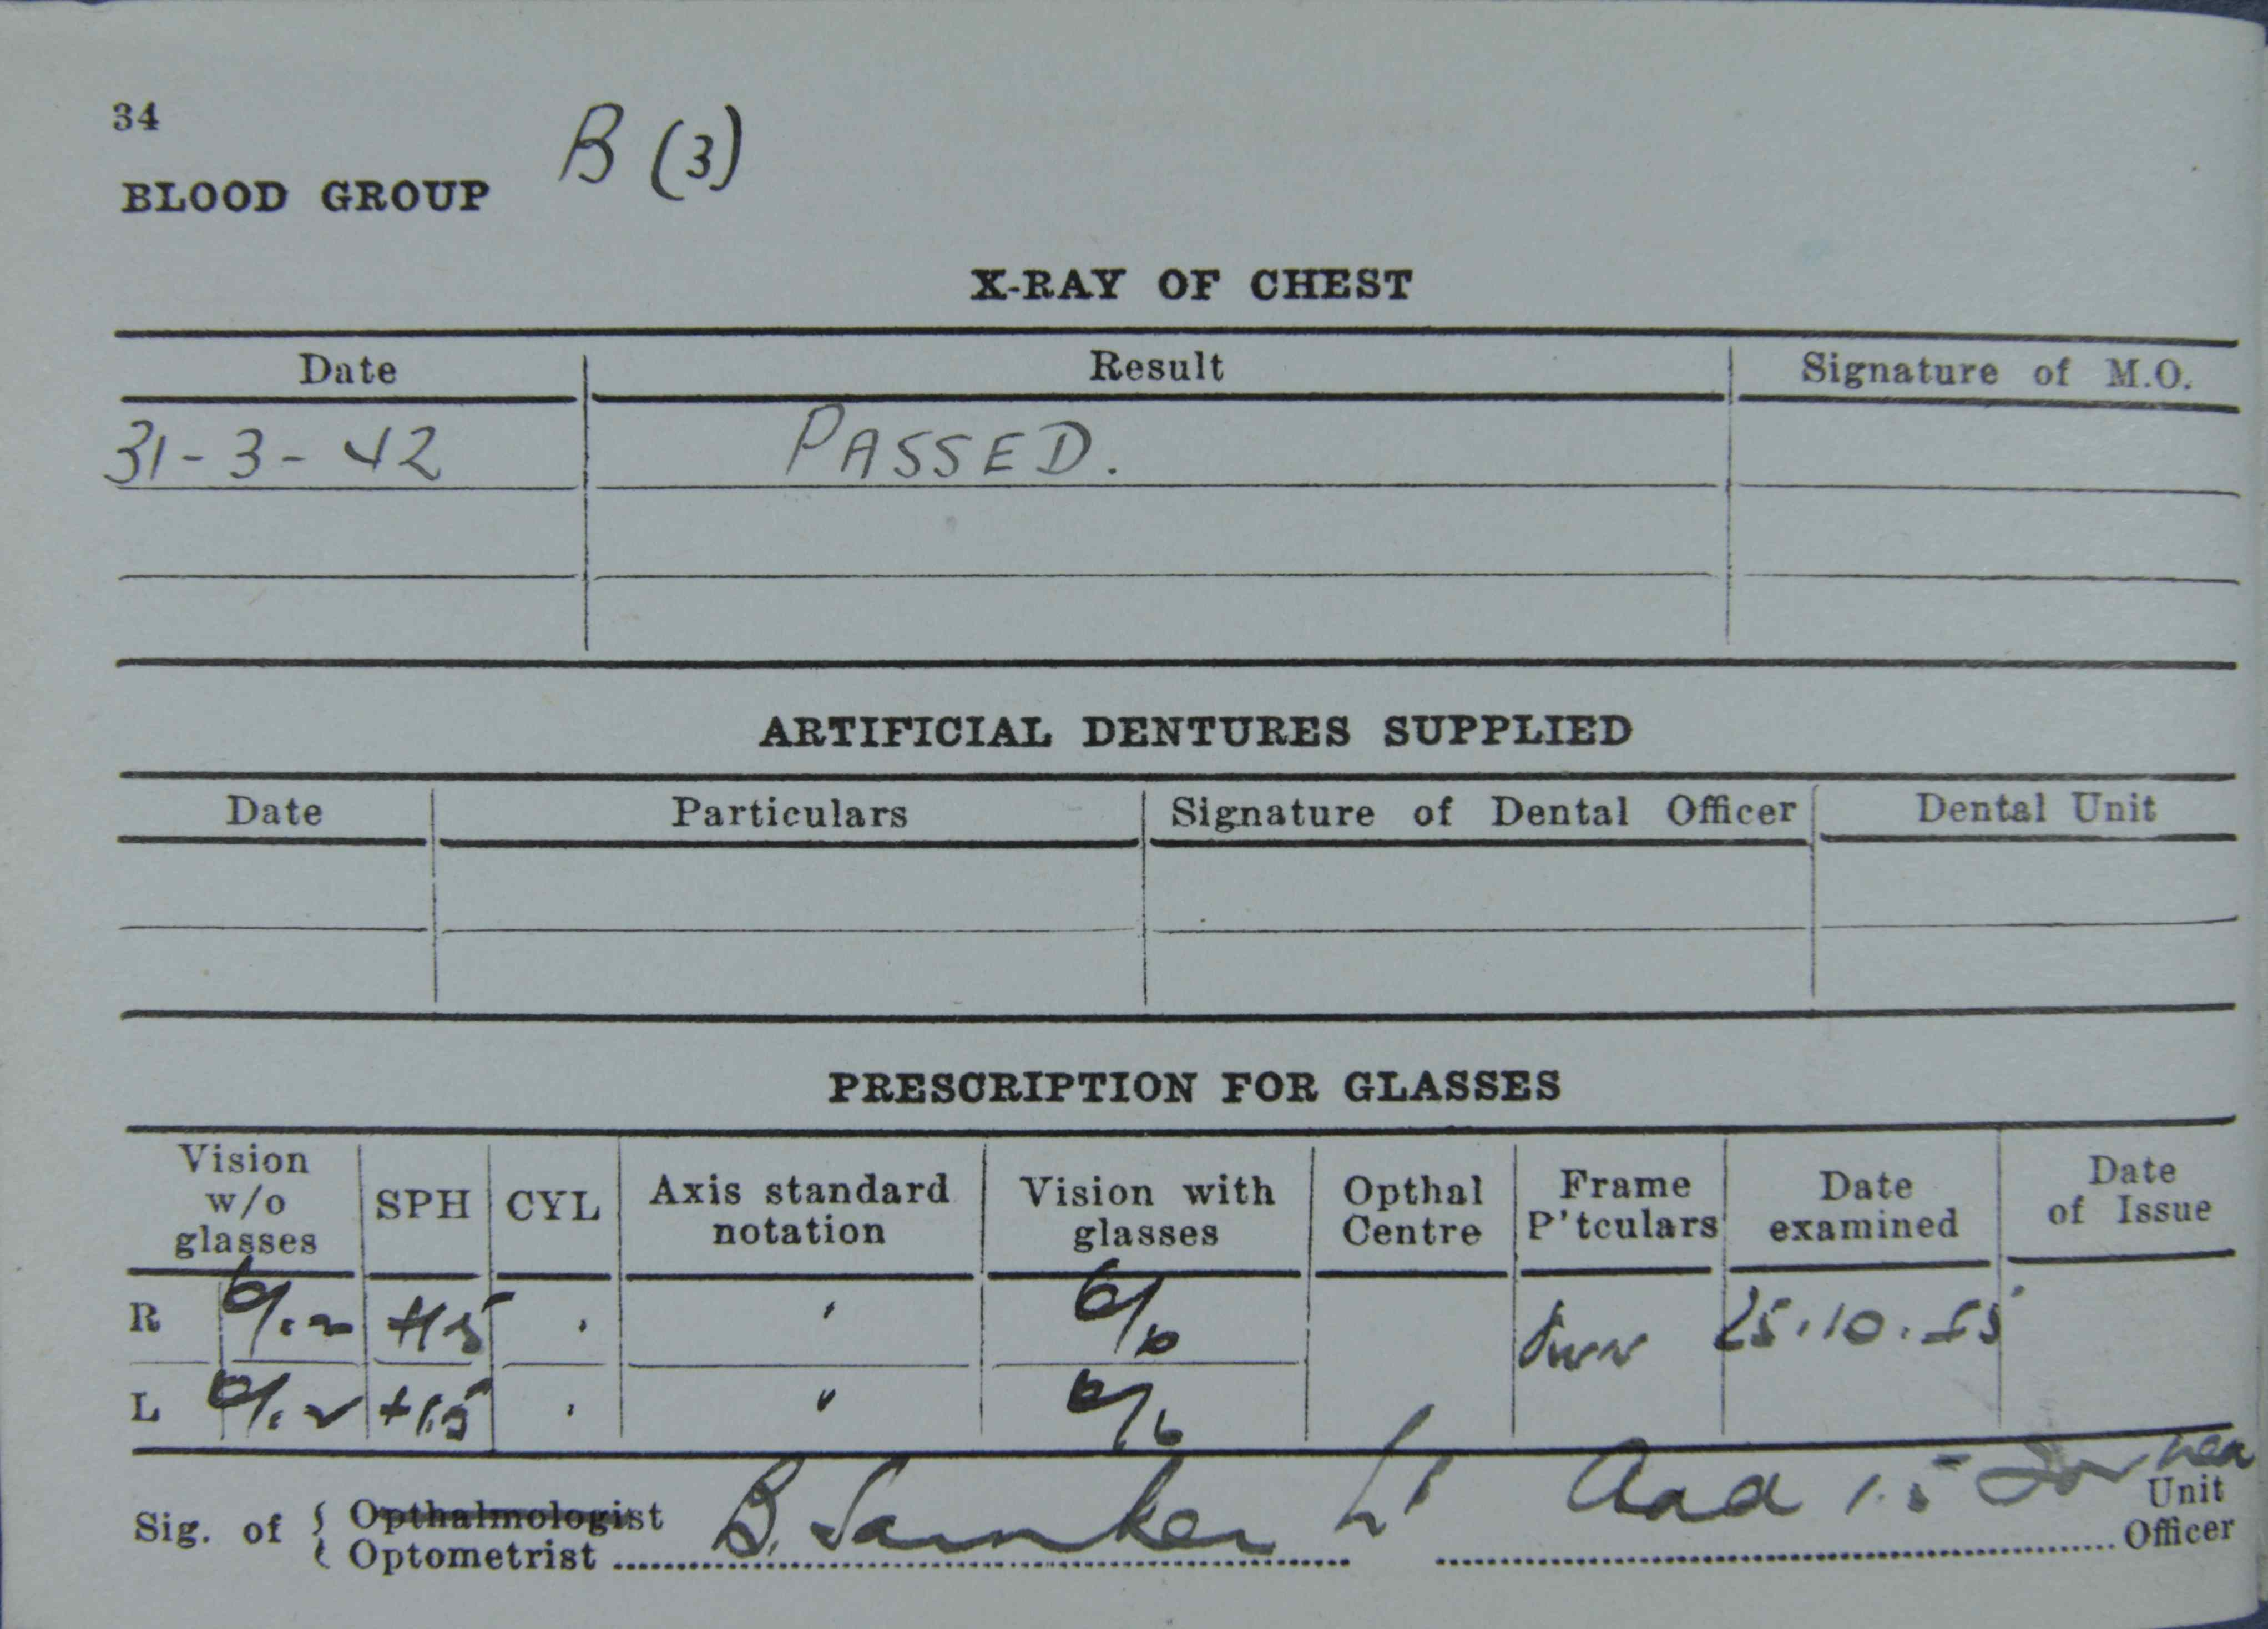 34
BLOOD GROUP B (3)
X-RAY OF CHEST
Date Result Signature of M.O.
31-3-42 PASSED.
ARTIFICIAL DENTURES SUPPLIED
Date Particulars Signature of Dental Officer Dental Unit
PRESCRIPTION FOR GLASSES
Vision w/o glasses SPH CYL Axis standard notation Vision with glasses Opthal Centre Frame P'tculars Date examined Date of Issue
R 6/12 +1.5 6/6 25.10.
L 6/12 +1.5 6/6
Sig. of { Opthalmologist
Optometrist B. Lt Add 1.5 Unit Officer